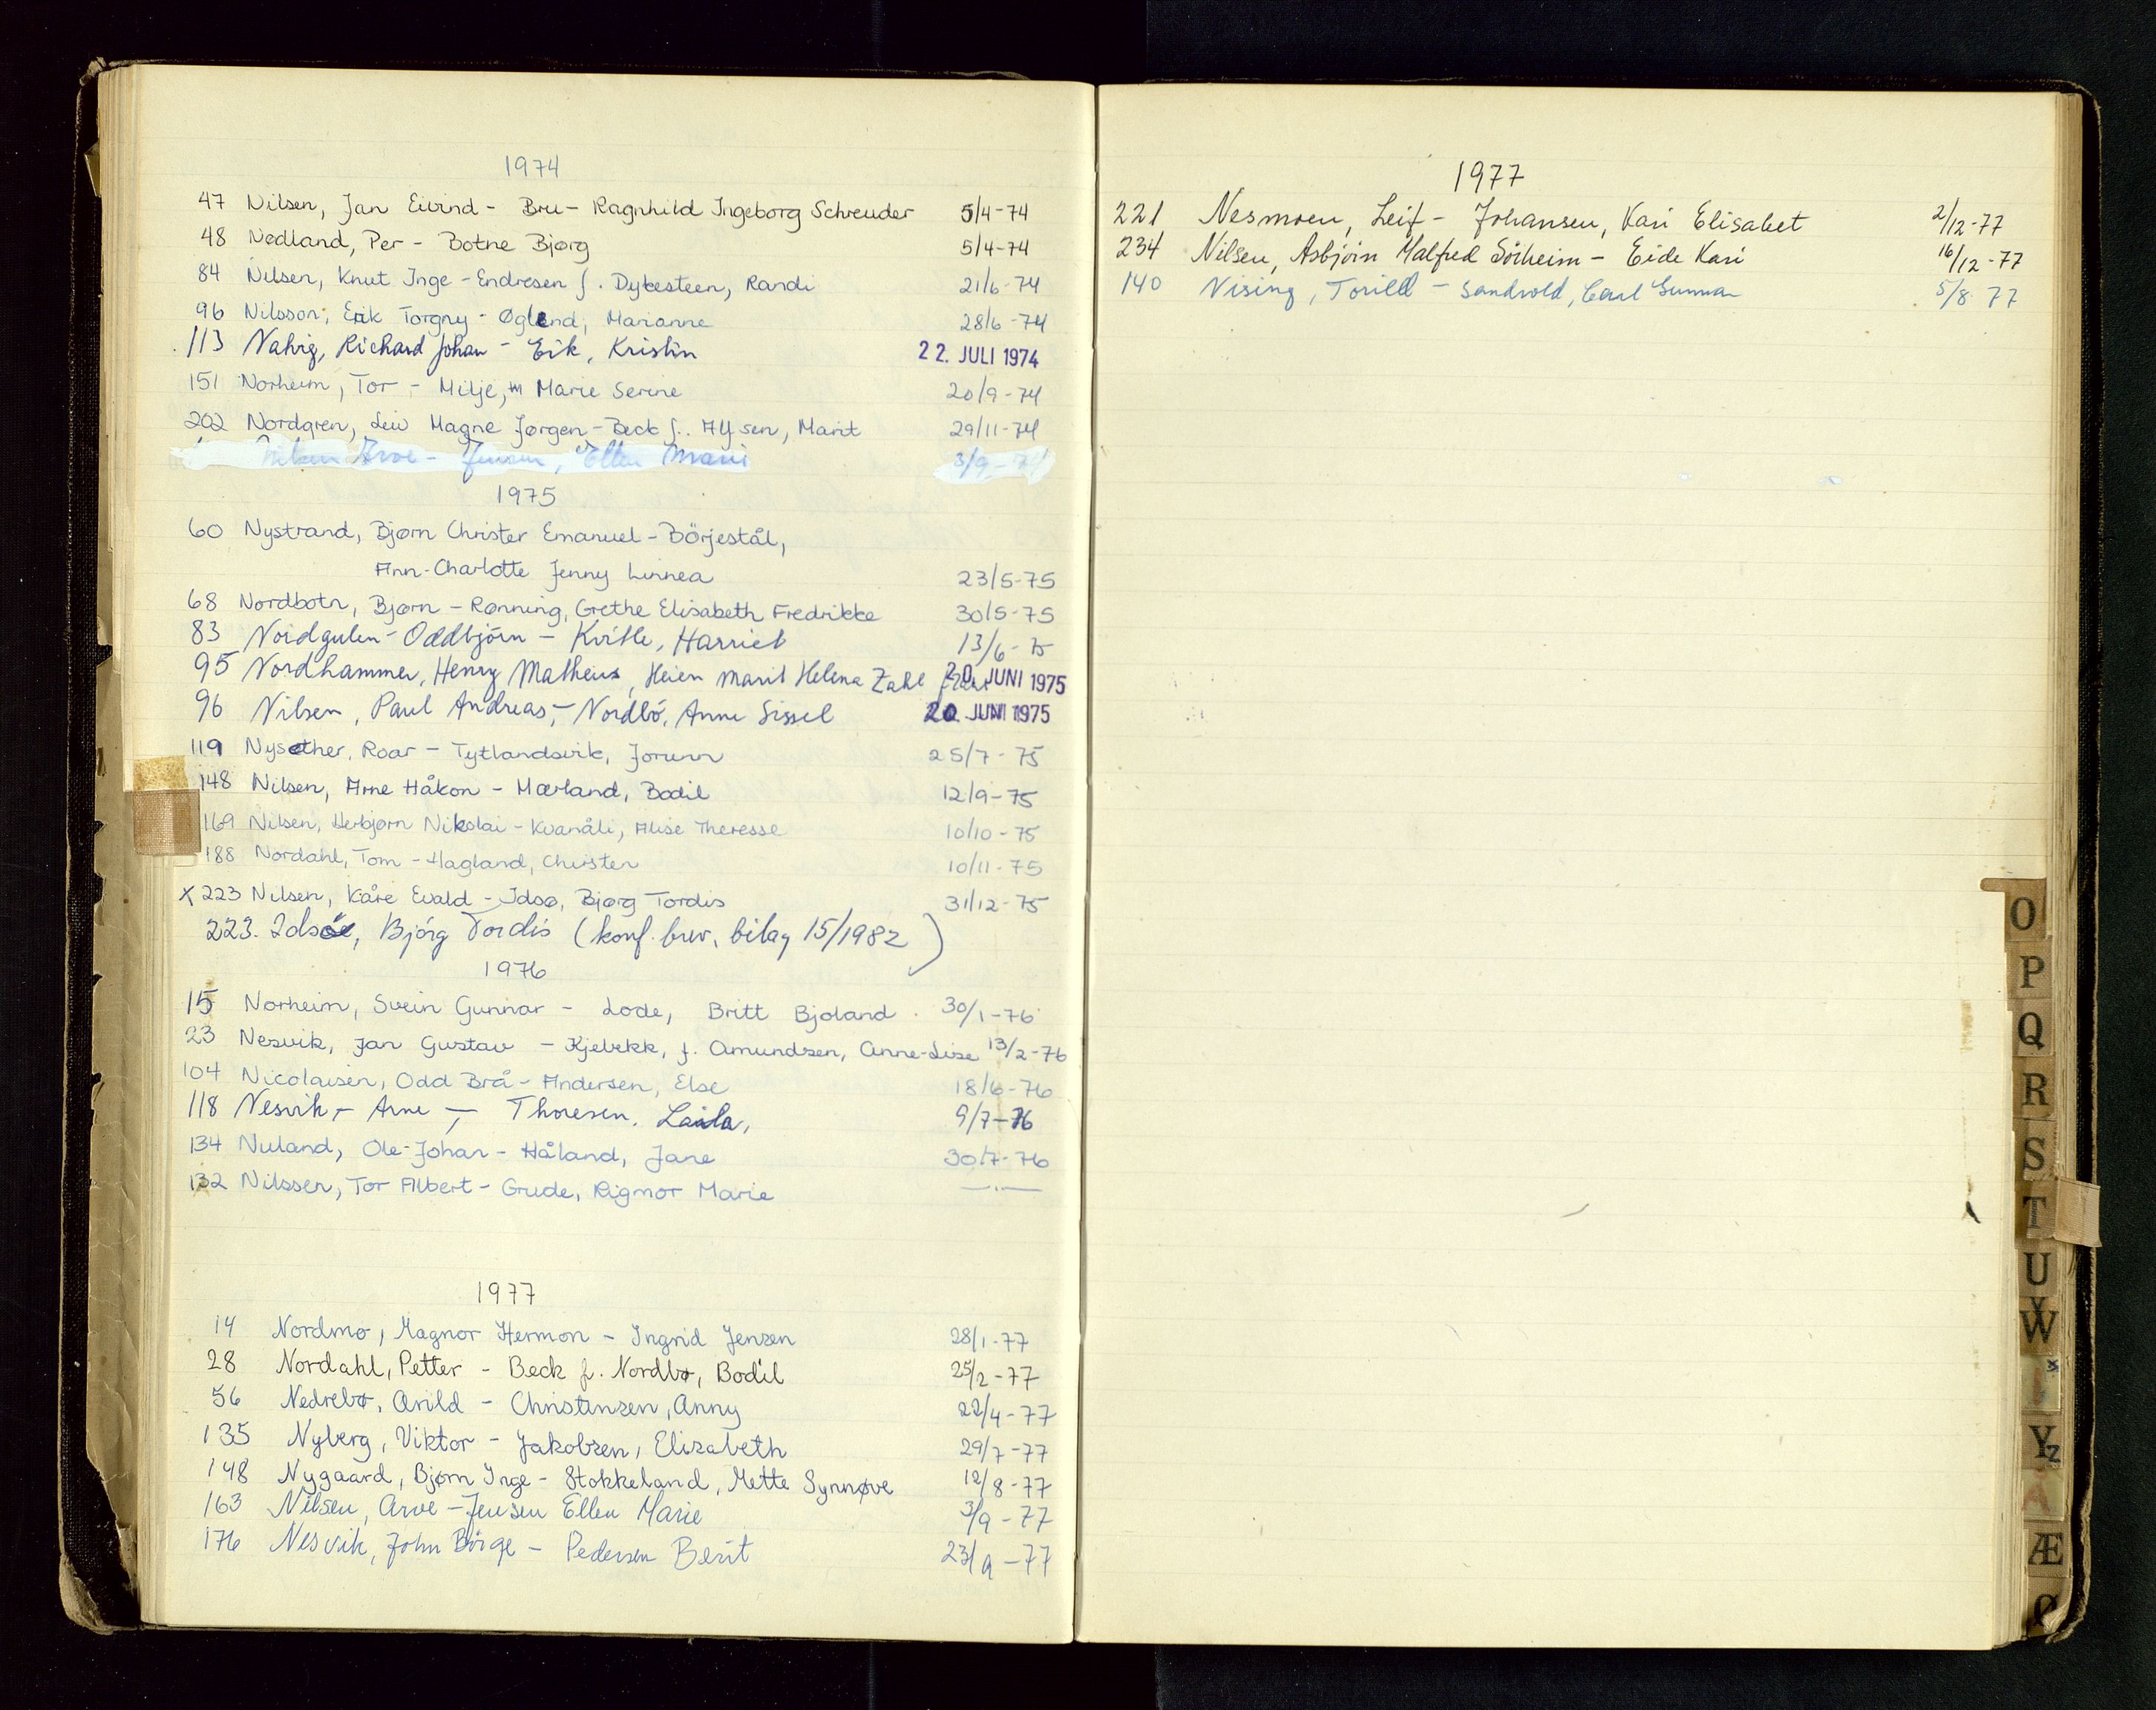 1974
47 Nilsen, Jan Eivind - Bru - Ragnhild Ingeborg Schreuder 5/4-74
48 Nedland, Per - Botne Bjørg 5/4-74
84 Nilsen, Knut Inge - Endresen f. Dybesteen, Randi 21/6-74
96 Nilsson, Erik Torgny - Øglend, Marianne 28/6-74
113 Nahrig, Richard Johan - Eik, Kristin 22. JULI 1974
151 Norheim, Tor - Milje, Marie Serine 20/9-74
202 Nordgren, Leiv Magne Jørgen - Beck f. Alfsen, Marit 29/11-74
Nilsen Arve - Jensen, Ellen Marie 3/9-74
1975
60 Nystrand, Bjørn Christer Emanuel - Börjestål,
Ann-Charlotte Jenny Linnea 23/5-75
68 Nordbotn, Bjørn - Rønning, Grethe Elisabeth Fredrikke 30/5-75
83 Nordgulen - Oddbjörn - Kvitle, Harriet 13/6-75
95 Nordhammer, Henry Matheus, Heien Marit Helena Zahl 20. JUNI 1975
96 Nilsen, Paul Andreas, - Nordbö, Anne Sissel 20. JUNI 1975
119 Nysether, Roar - Tytlandsvik, Jorunn 25/7-75
148 Nilsen, Arne Håkon - Mærland, Bodil 12/9-75
169 Nilsen, Herbjørn Nikolai - Kvanåli, Alise Theresse 10/10-75
188 Nordahl, Tom - Hagland, Christen 10/11-75
x 223 Nilsen, Kåre Evald - Idsø, Bjørg Tordis 31/12-75
223. Idsøe, Bjørg Tordis (konf. brev, bilag 15/1982)
1976
15 Norheim, Svein Gunnar - Lode, Britt Bjoland. 30/1-76
23 Nesvik, Jan Gustav - Kjelvkk, f. Amundsen, Anne-Lise 13/2-76
104 Nicolaisen, Odd Brå - Andersen, Else 18/6-76
118 Nesvik, - Arne - Thoresen, Laila, 9/7-76
134 Nuland, Ole-Johan - Håland, Jane 30/7-76
132 Nilssen, Tor Albert - Grude, Rigmor Marie —.—
1977
14 Nordmo, Magnor Hermon - Ingrid Jensen 28/1-77
28 Nordahl, Petter - Beck f. Nordbø, Bodil 25/2-77
56 Nedrebø, Arild - Christensen, Anny 22/4-77
135 Nyberg, Viktor - Jakobsen, Elisabeth 29/7-77
148 Nygaard, Bjørn Inge - Stokkeland, Mette Synnøve 12/8-77
163 Nilsen, Arve - Jensen Ellen Marie 3/9-77
176 Nesvik, John Börge - Pedersen Berit 23/9-77
1977
221 Nesmoen, Leif - Johansen, Kari Elisabet 2/12-77
234 Nilsen, Asbjörn Malfred Sörheim - Eide Kari 16/12-77
140 Nising, Torild - Sandvold, Carl Gunnar 5/8 77
O
P
Q
R
S
T
U
W
Y
Z
Å
Æ
Ø